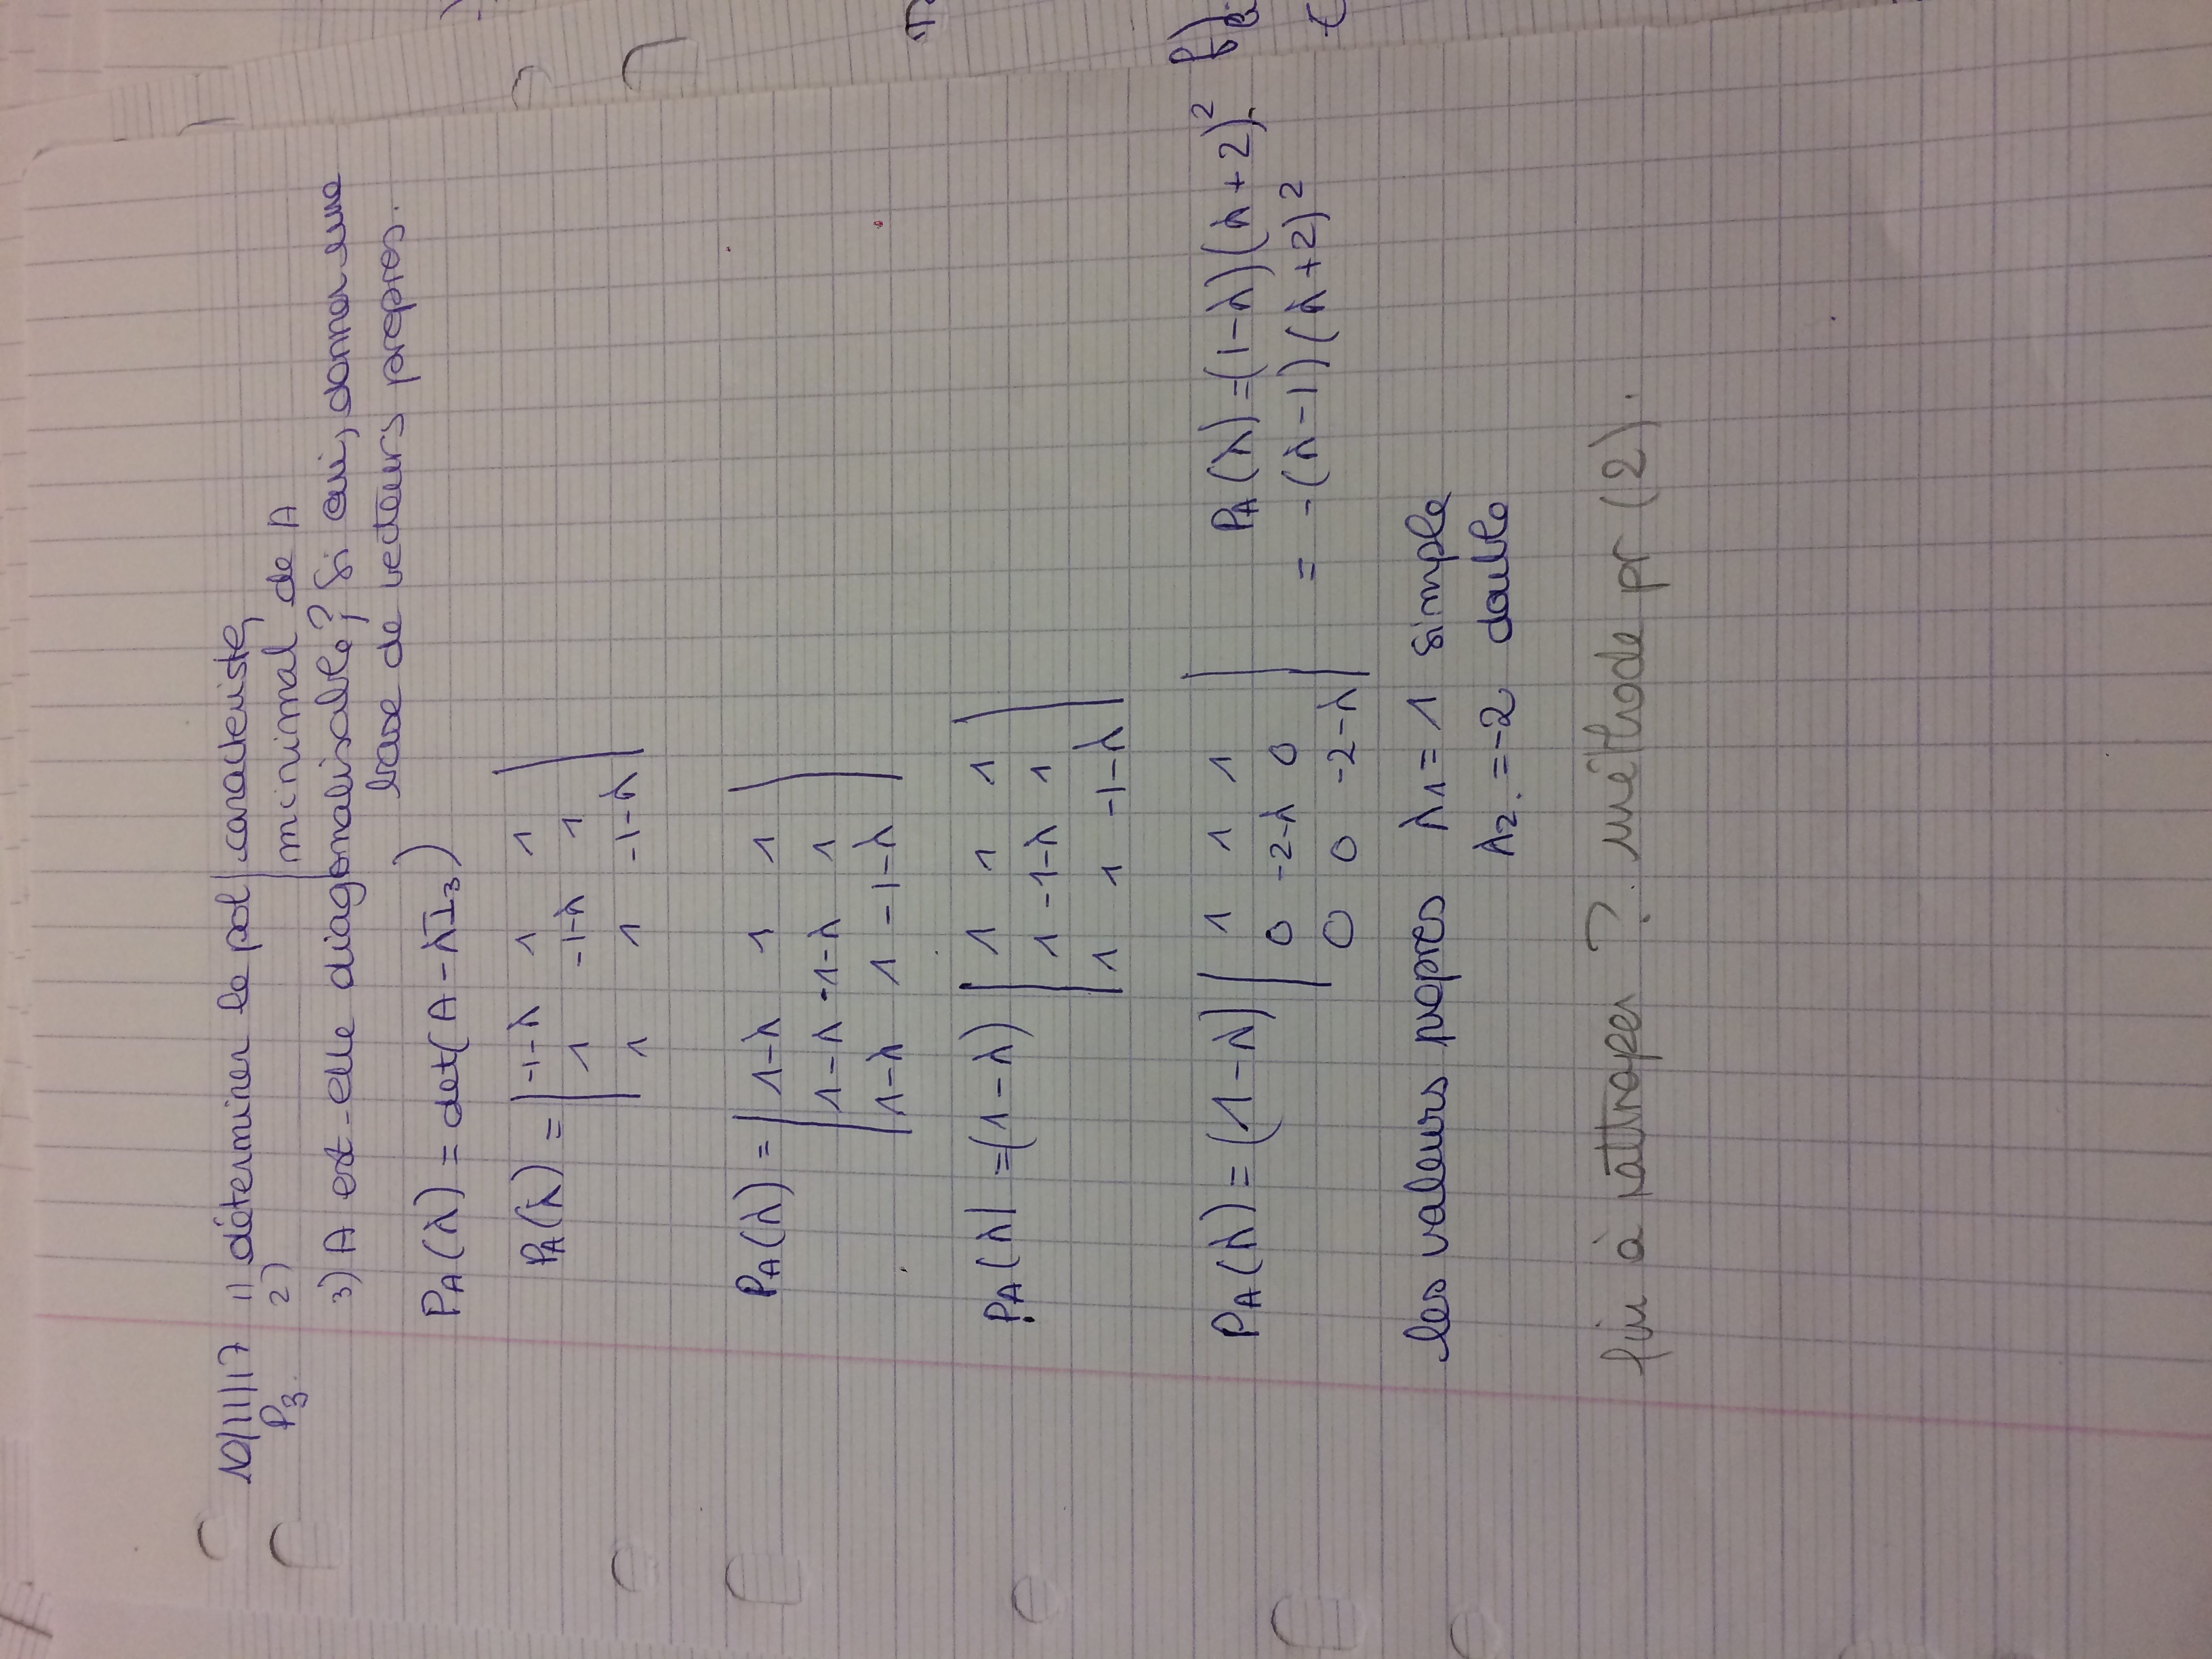 10/11/17 1) déterminer le pol caracteristq
P3. 2) minimal de A
3) A est-elle diagonalisable? Si oui, donner une
base de vecteurs propres.
PA(λ) = det(A - λI3)
PA(λ) = | -1-λ 1 1 |
| 1 -1-λ 1 |
| 1 1 -1-λ |
PA(λ) = | 1-λ 1 1 |
| 1-λ -1-λ 1 |
| 1-λ 1 -1-λ |
PA(λ| = (1-λ) | 1 1 1 |
| 1 -1-λ 1 |
| 1 1 -1-λ |
PA(λ) = (1-λ) | 1 1 1 | PA(λ) = (1-λ)(λ+2)².
| 0 -2-λ 0 | = -(λ-1)(λ+2)²
| 0 0 -2-λ |
les valeurs propres λ1 = 1 simple
λ2. = -2 double
fin à rattraper ? méthode pr (2).